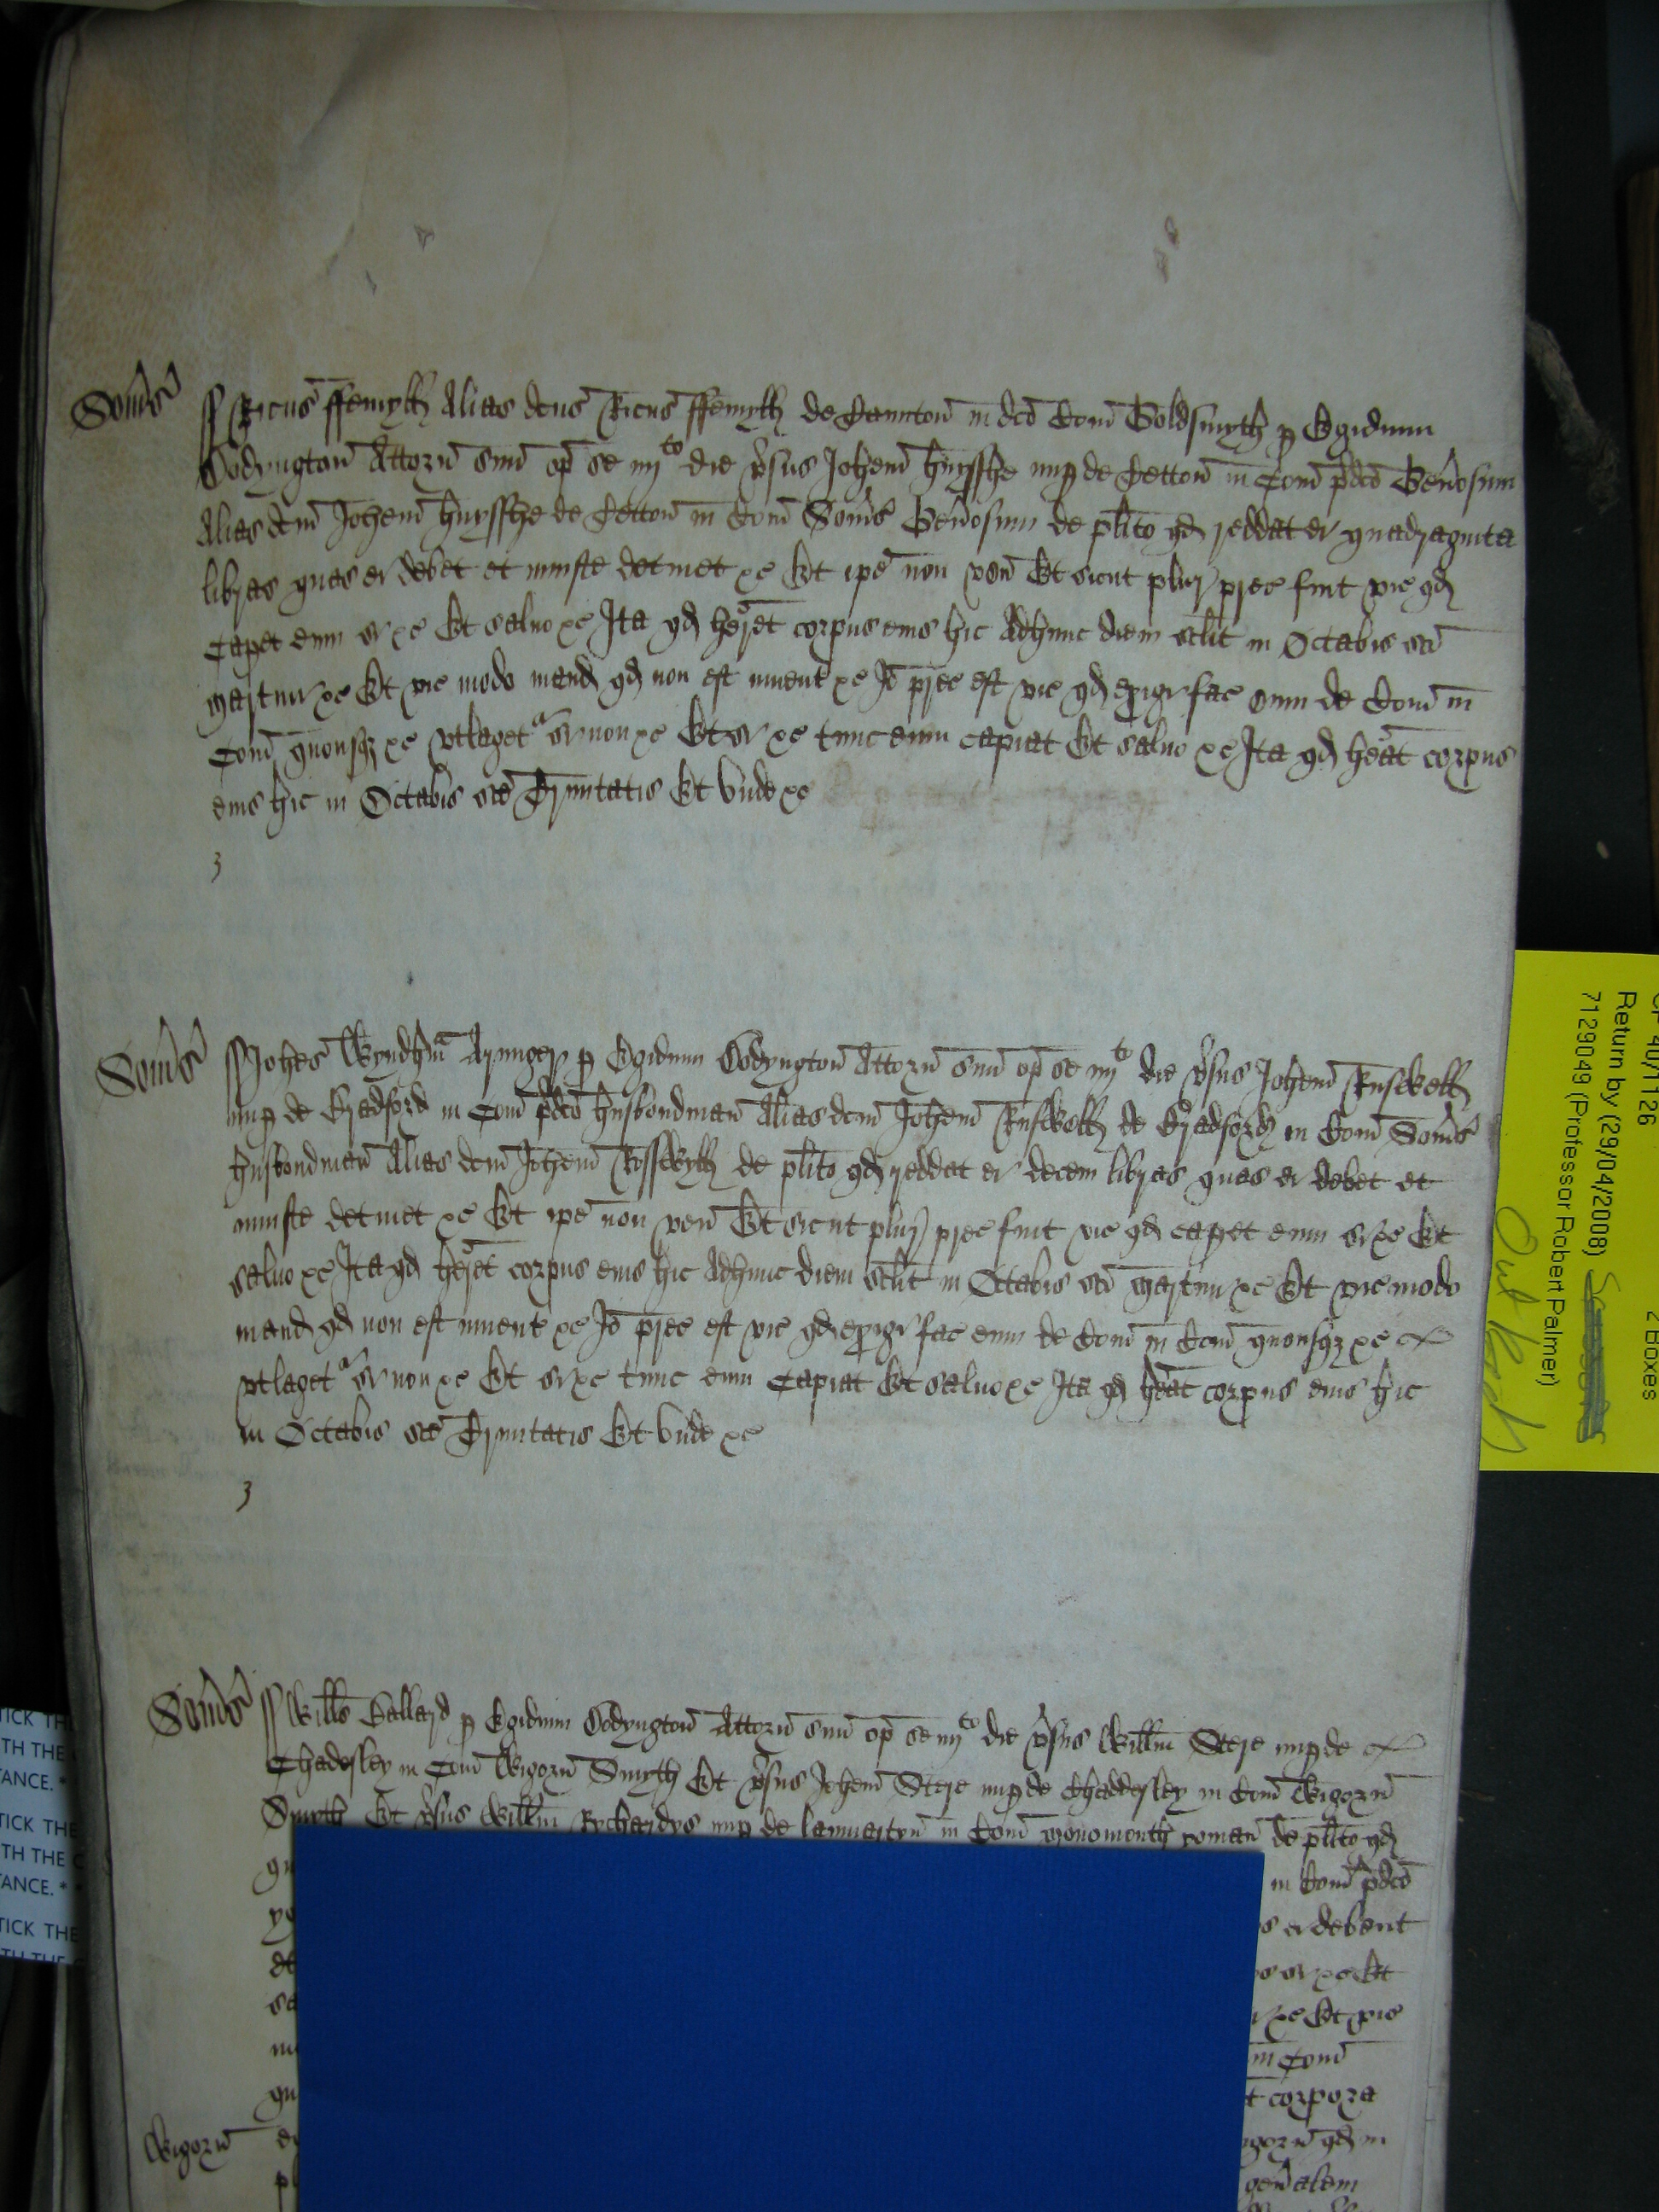 Som̃s
Ric̃us ffemyth Alias dc̃us Ric̃us ffemyth de Taunton in dc̃o Com̃ Goldsmyth p Egidium
Dodyngton Attorñ suũ op̃ se iiij to die ṽsus Joh̃em Huysshe nup de Tetton in Com̃ p̃dc̃o Geñosum
Alias dc̃m Joh̃em Huysshe de Tetton in Com̃ Som̃s Geñosum de pl̃ito qd reddat ei quadraginta
libras quas ei debet et iniuste detinet &c Et ip̃e non ven̄ Et sicut plur prec fuit vic qd
capet eum si &c Et saluo &c Ita qd heret corpus eius hic Adhunc diem scl̃t in Octabis sc̃i
Martini &c Et vic modo mand qd non est inuent &c Jõ prec est vic qd exigi fac eum de Com̃ in
Com̃ quousqz &c vtlaget a si non &c Et si &c tunc eum capiat Et saluo &c Ita qd heat corpus
eius hic in Octabis sc̃e Trinitatis Et vnde &c
3
Som̃s
Joh̃es Wyndhm̃ Armiger p Egidium Dodyngton Attorñ suũ op̃ se iiij to die ṽsus Joh̃em Rusewell
nup de Bradford in Com̃ p̃dc̃o husbondman Alias dc̃m Joh̃em Rusewell de Bradford in Com̃ Som̃s
husbondman Alias dc̃m Joh̃em de pl̃ito qd reddat ei decem libras quas ei debet et
iniuste detinet &c Et ip̃e non ven̄ Et sicut plur prec fuit vic qd capet eum si &c Et
saluo &c Ita qd heret corpus eius hic Adhunc diem scl̃t in Octabis sc̃i Martini &c Et vic modo
mand qd non est inuent &c Jõ prec est vic qd exigi fac eum de Com̃ in Com̃ quousqz &c
vtlaget a si non &c Et si &c tunc eum Capiat Et saluo &c Ita qd heat corpus eius hic
in Octabis sc̃e Trinitatis Et vnde &c
3
Som̃s
Will̃s Ballard p Egidium Dodyngton Attorñ suũ op̃ se iiij to die ṽsus Will̃m Stere nup de
Chadesley in Com̃ Wigorñ Smyth Et ṽsus Joh̃em Stere nup de Chaddesley in Com̃ Wigorñ
Smyth Et ṽsus Will̃m Rychardys nup de in Com̃ Monomouth yoman de pl̃ito qd
in Com̃ p̃dc̃o
ei debent
si &c Et
&c Et vic
in Com̃
corpora
Wigorñ
qd in
geñalem
CP 40/1126
Return by (29/04/2008)
7129049 (Professor Robert Palmer)
2 Boxes
TICK THE
TH THE
TANCE. *
TICK THE
TH THE
TANCE. *
TICK THE